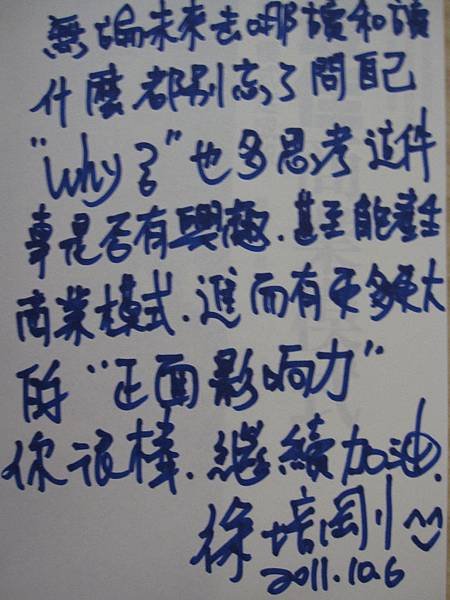 無論未來去哪讀和讀
什麼都別忘了問自己
"Why?"也多思考這件
事是否有興趣.甚至能產生
商業模式.進而有更多更大
的"正面影响力"
你很棒.繼續加油.
徐培剛
2011.10.6